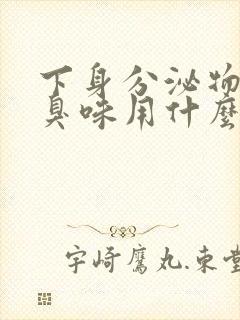 下身分泌物
臭味用什麼
宇崎鷹丸.東堂